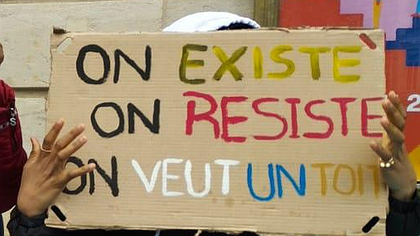 ON EXISTE
ON RESISTE
ON VEUT UN TOIT
2